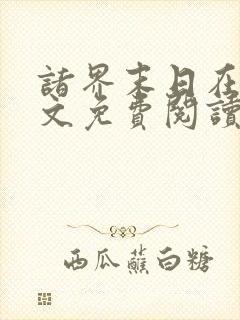 諸界末日在
文免費閱讀
西瓜蘸白糖